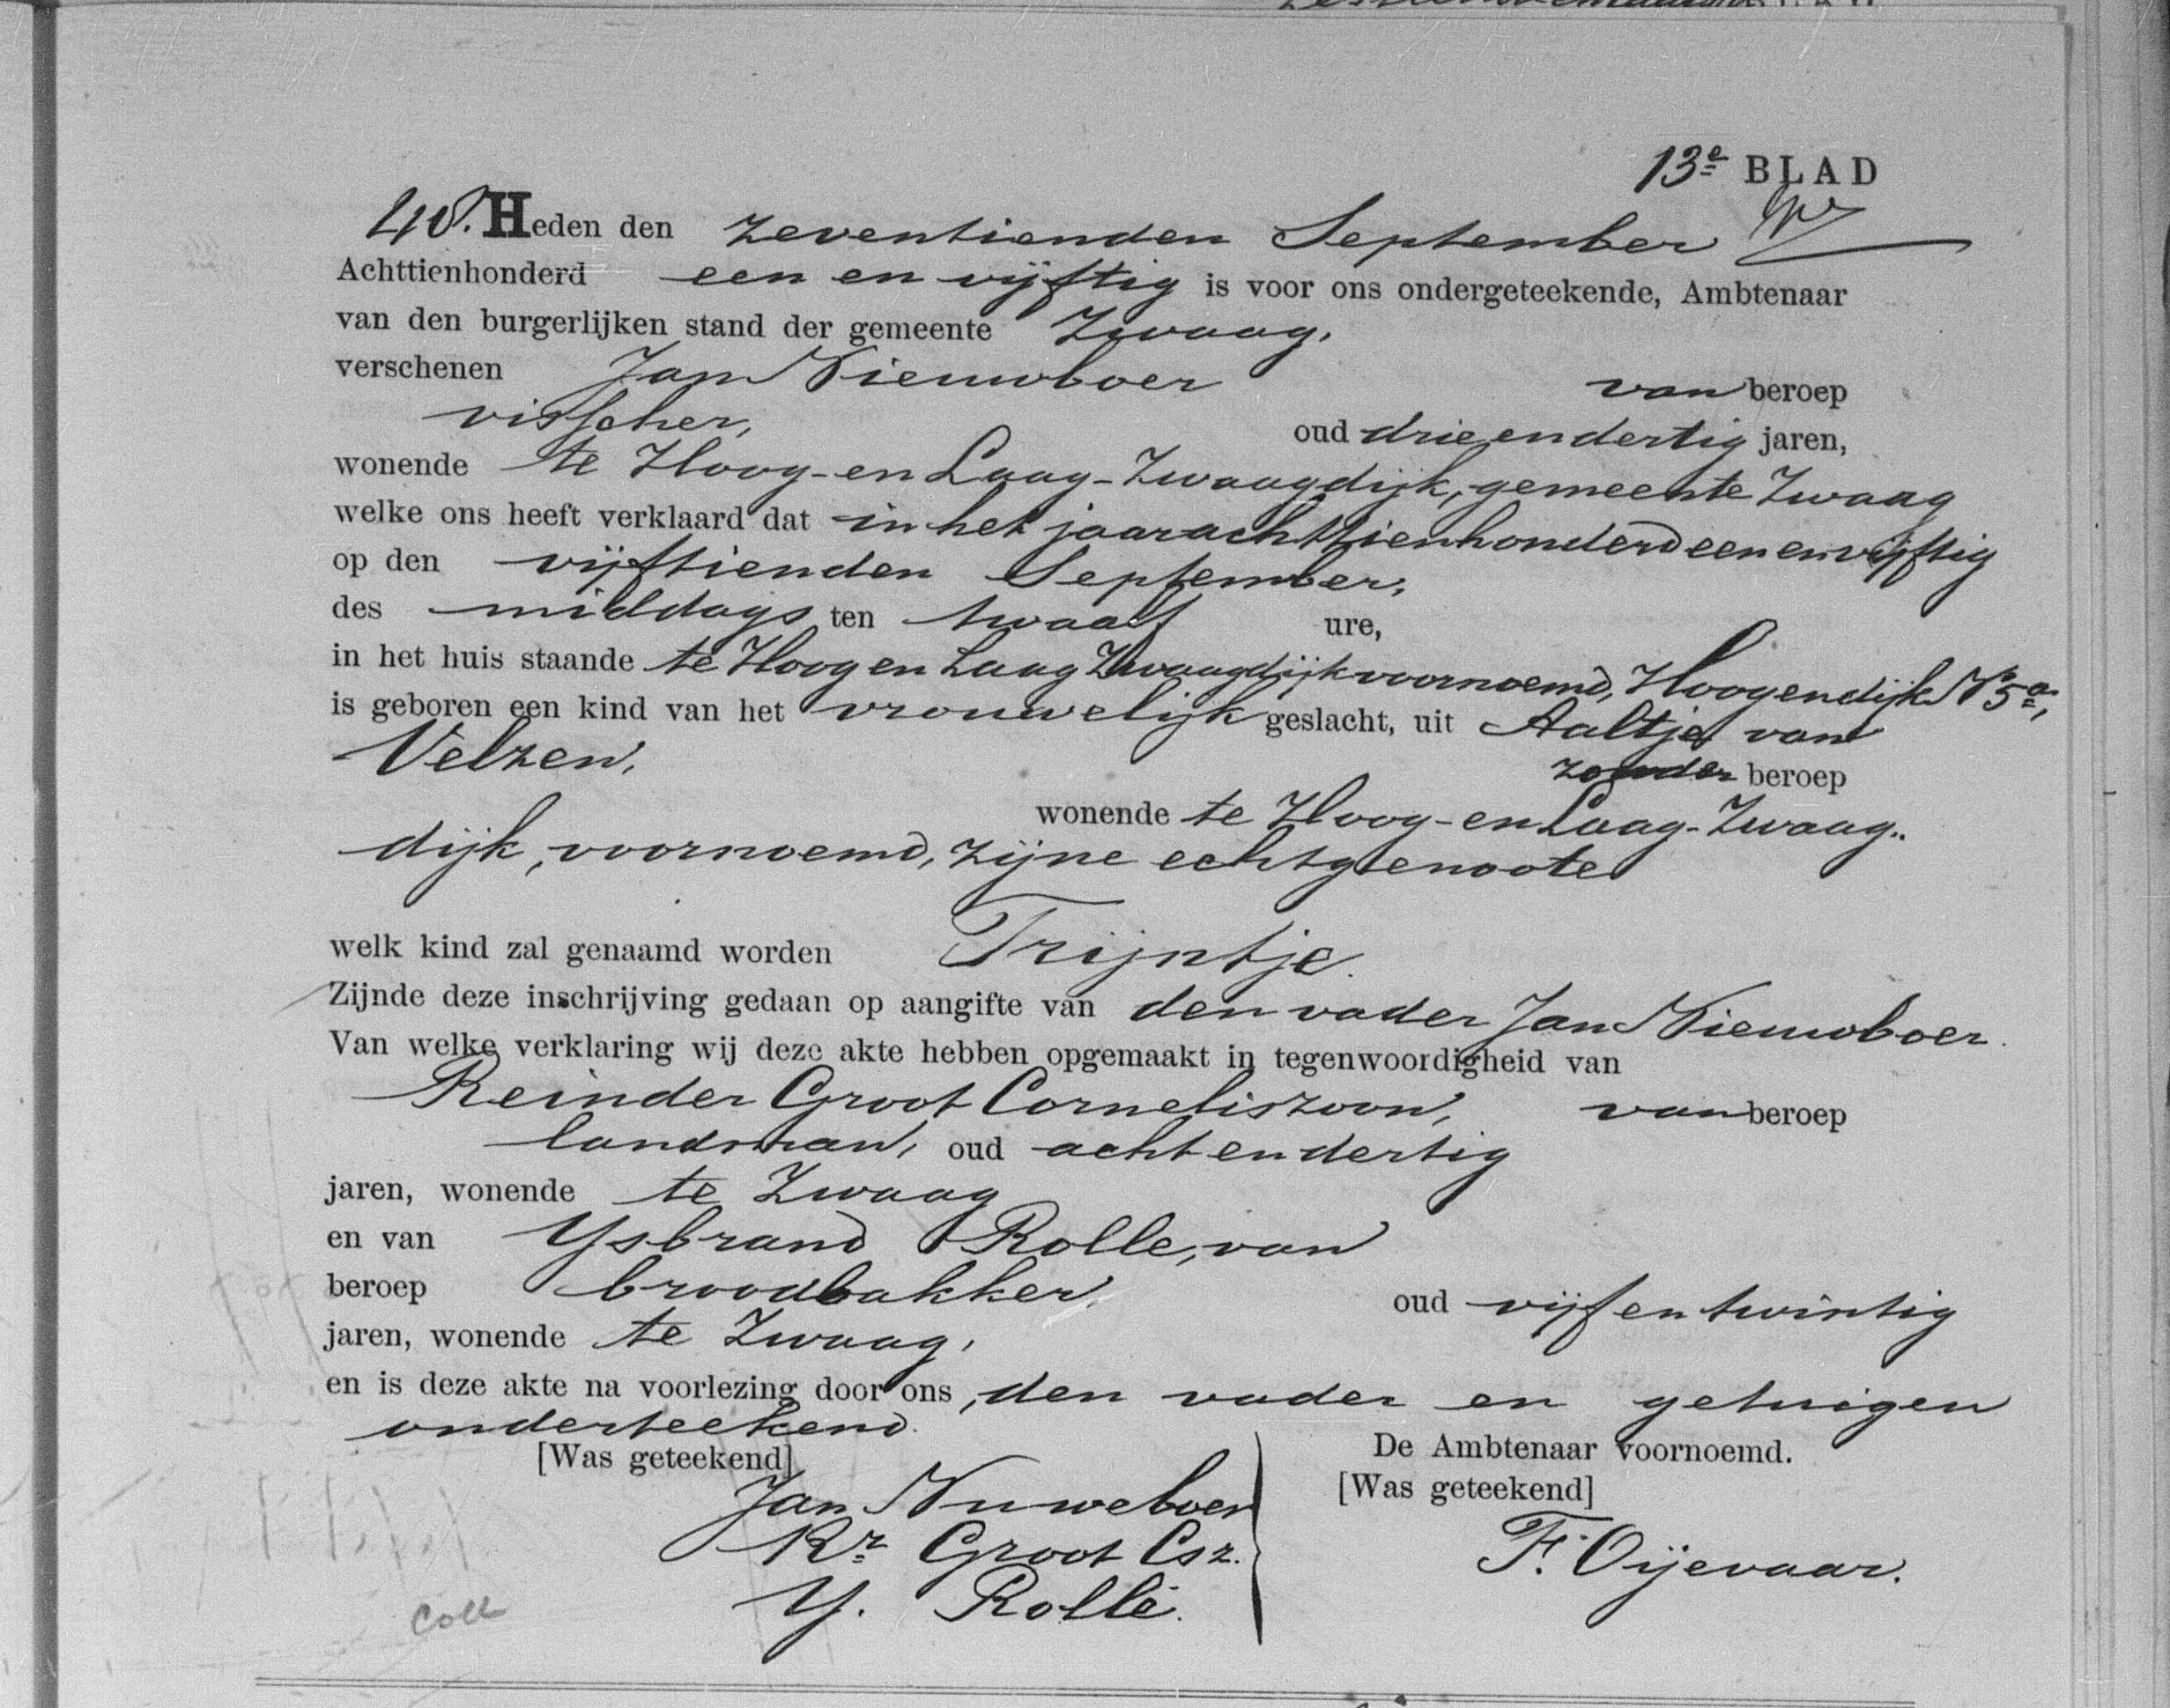 13e BLAD
48. Heden den zeventienden September
Achttienhonderd een en vijftig is voor ons ondergeteekende, Ambtenaar
van den burgerlijken stand der gemeente Zwaag,
verschenen Jan Nieuwboer van beroep
visscher, oud drie en dertig jaren,
wonende te Hoog-en Laag-Zwaagdijk, gemeente Zwaag
welke ons heeft verklaard dat in het jaar achttienhonderd een en vijftig
op den vijftienden September,
des middags ten twaalf ure,
in het huis staande te Hoog en Laag Zwaagdijk voornoemd, Hoogendijk No 5a,
is geboren een kind van het vrouwelijk geslacht, uit Aaltje van
Velzen, zonder beroep
wonende te Hoog-en Laag-Zwaag-
dijk, voornoemd, zijne echtgenoote
welk kind zal genaamd worden Trijntje.
Zijnde deze inschrijving gedaan op aangifte van den vader Jan Nieuwboer.
Van welke verklaring wij deze akte hebben opgemaakt in tegenwoordigheid van
Reinder Groot Corneliszoon, van beroep
landman, oud acht en dertig
jaren, wonende te Zwaag
en van Ysbrand Rolle, van
beroep broodbakker, oud vijf en twintig
jaren, wonende te Zwaag,
en is deze akte na voorlezing door ons, den vader en getuigen
onderteekend.
[Was geteekend] De Ambtenaar voornoemd.
Jan Nuweboer [Was geteekend]
Rr Groot Csz. F. Oijevaar.
Y. Rolle.
Coll